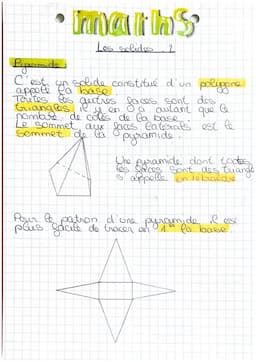 maths
Les solides 2
Pyramide
C'est un solide constitué d'un polygone
appelé la base
Toutes les autres faces sont des
triangles il y en a autant que le
nombre de côtés de la base.
Le sommet aux faces latérales est le
sommet de la pyramide.
Une pyramide dont toutes
les faces sont des triangles
s'appelle un tétraèdre
Pour le patron d'une pyramide il est
plus facile de tracer en 1er la base